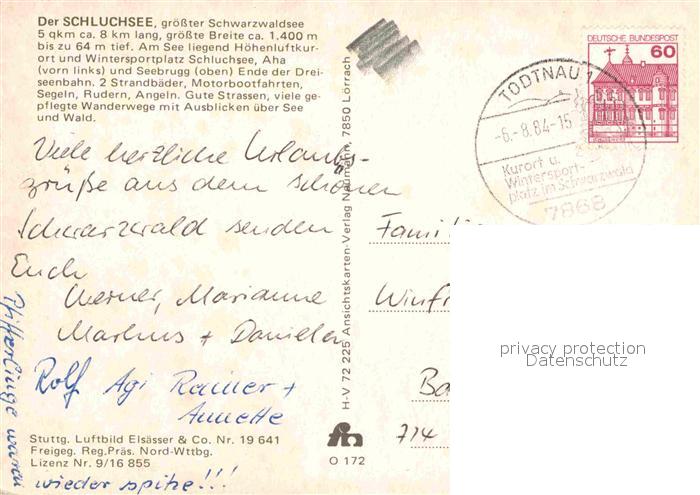 Der SCHLUCHSEE, größter Schwarzwaldsee
5 qkm ca. 8 km lang, größte Breite ca. 1.400 m
bis zu 64 m tief. Am See liegend Höhenluftkur-
ort und Wintersportplatz Schluchsee, Aha
(vorn links) und Seebrugg (oben) Ende der Drei-
seenbahn. 2 Strandbäder, Motorbootfahrten,
Segeln, Rudern, Angeln. Gute Strassen, viele ge-
pflegte Wanderwege mit Ausblicken über See
und Wald.
Viele herzliche Urlaubs-
grüße aus dem schönen
Schwarzwald senden
Euch
Werner, Marianne
Markus + Daniela
Rolf Agi Rainer +
Annette
Pfifferlinge waren
wieder spitze!!!
Stuttg. Luftbild Elsässer & Co. Nr. 19 641
Freigeg. Reg.Präs. Nord-Wttbg.
Lizenz Nr. 9/16 855
H-V 72 225 Ansichtskarten-Verlag Naumann, 7850 Lörrach
O 172
DEUTSCHE BUNDESPOST
60
TODTNAU 1
-6.-8.84-15
Kurort u.
Wintersport-
platz im Schwarzwald
7868
Famili
Winfr
Ba
714
privacy protection
Datenschutz